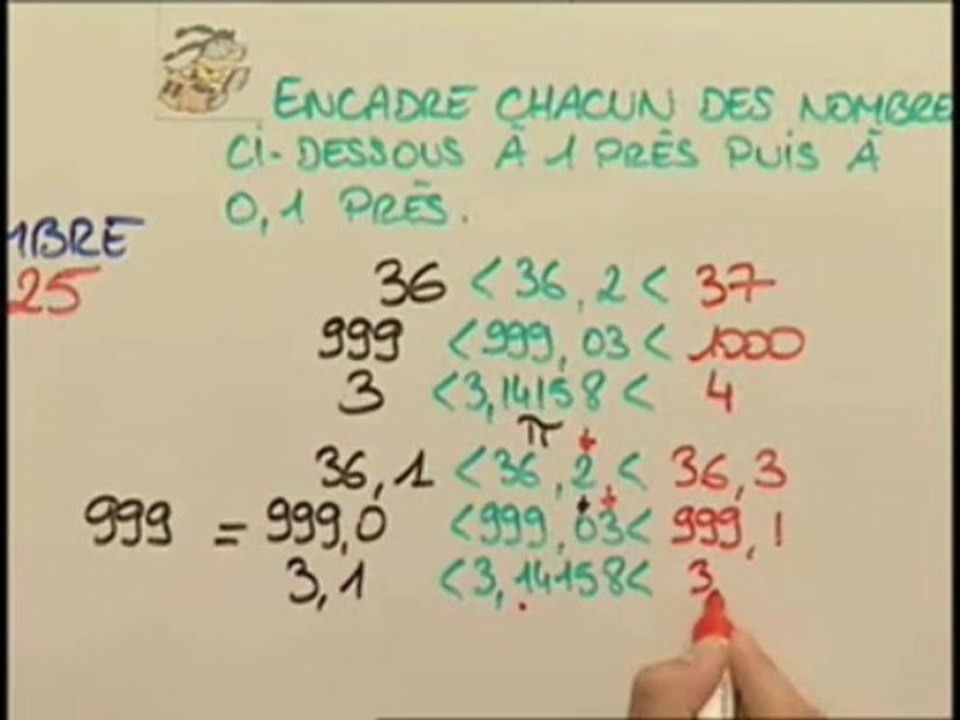 ENCADRE CHACUN DES NOMBRE
CI-DESSOUS À 1 PRÈS PUIS À
0,1 PRÈS.
MBRE
25
36 < 36,2 < 37
999 < 999,03 < 1000
3 < 3,14158 < 4
π
36,1 < 36,2 < 36,3
999 = 999,0 < 999,03 < 999,1
3,1 < 3,14158 < 3,